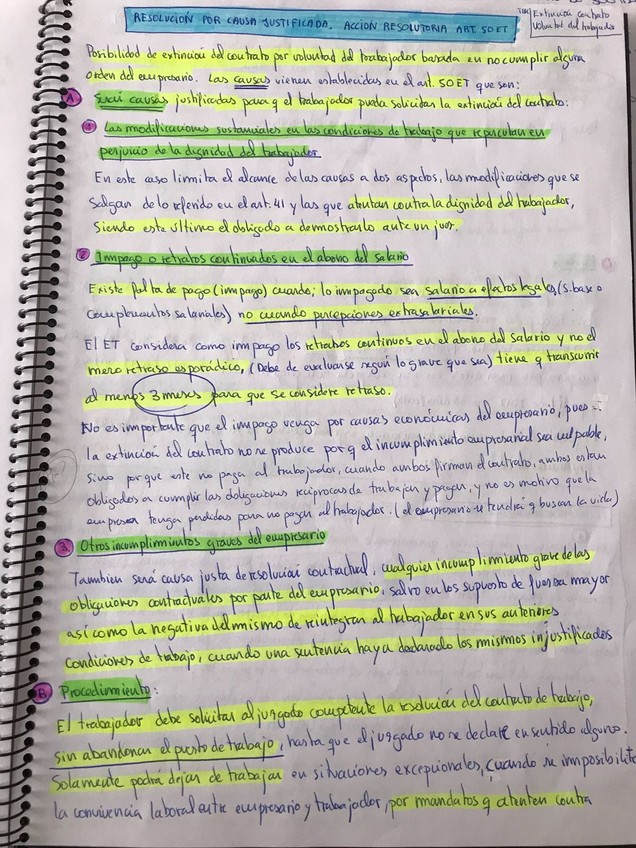 RESOLUCIÓN POR CAUSA JUSTIFICADA. ACCIÓN RESOLUTORIA ART. 50 ET
Extinción contrato
Voluntad del trabajador
Posibilidad de extinción del contrato por voluntad del trabajador basada en no cumplir alguna
orden del empresario. Las causas vienen establecidas en el art. 50 ET que son:
A Será causas justificadas para q el trabajador pueda solicitar la extinción del contrato:
1 Las modificaciones sustanciales en las condiciones de trabajo que repercutan en
perjuicio de la dignidad del trabajador
En este caso limita el alcance de las causas a dos aspectos, las modificaciones que se
Salgan de lo referido en el art. 41 y las que atentan contra la dignidad del trabajador,
siendo este último el obligado a demostrarlo ante un juez.
2 Impago o retratos continuados en el abono del salario
Existe falta de pago (impago) cuando; lo impagado sea salario a efectos legales, (s. base o
complementos salariales) no cuando percepciones extrasalariales.
El ET considera como impago los retrasos continuos en el abono del salario y no el
mero retraso esporádico, (Debe de evaluarse según lo grave que sea) tiene q transcurrir
al menos 3 meses para que se considere retraso.
No es importante que el impago venga por causas económicas del empresario, pues
la extinción del contrato no se produce por q el incumplimiento empresarial sea culpable,
Sino por que este no paga al trabajador, cuando ambos firman el contrato, ambos estan
obligados a cumplir las obligaciones recíprocas de trabajar y pagar, y no es motivo que la
empresa tenga perdidas para no pagar al trabajador. (el empresario se tendrá q buscar la vida)
3. Otros incumplimientos graves del empresario
Tambien será causa justa de resolución contractual, cualquier incumplimiento grave de las
obligaciones contractuales por parte del empresario, salvo en los supuesto de fuerza mayor
así como la negativa del mismo de reintegrar al trabajador en sus anteriores
condiciones de trabajo, cuando una sentencia haya declarado los mismos injustificados
B Procedimiento:
El trabajador debe solicitar al juzgado competente la resolución del contrato de trabajo,
sin abandonar el puesto de trabajo, hasta que el juzgado no se declare en sentido alguno.
Solamente podrá dejar de trabajar en situaciones excepcionales, cuando se imposibilite
la convivencia laboral entre empresario y trabajador, por mandatos q atenten contra